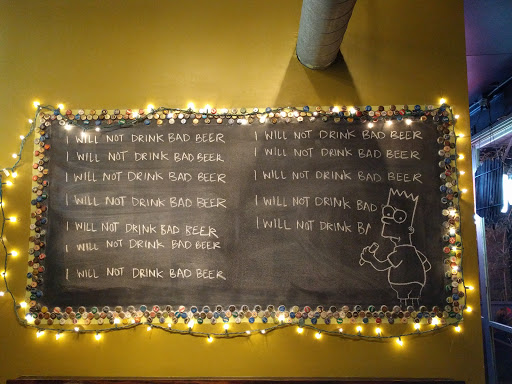 I WILL NOT DRINK BAD BEER
I WILL NOT DRINK BAD BEER
I WILL NOT DRINK BAD BEER
I WILL NOT DRINK BAD BEER
I WILL NOT DRINK BAD BEER
I WILL NOT DRINK BAD BEER
I WILL NOT DRINK BAD BEER
I WILL NOT DRINK BAD BEER
I WILL NOT DRINK BAD BEER
I WILL NOT DRINK BAD BEER
I WILL NOT DRINK BAD
I WILL NOT DRINK BA